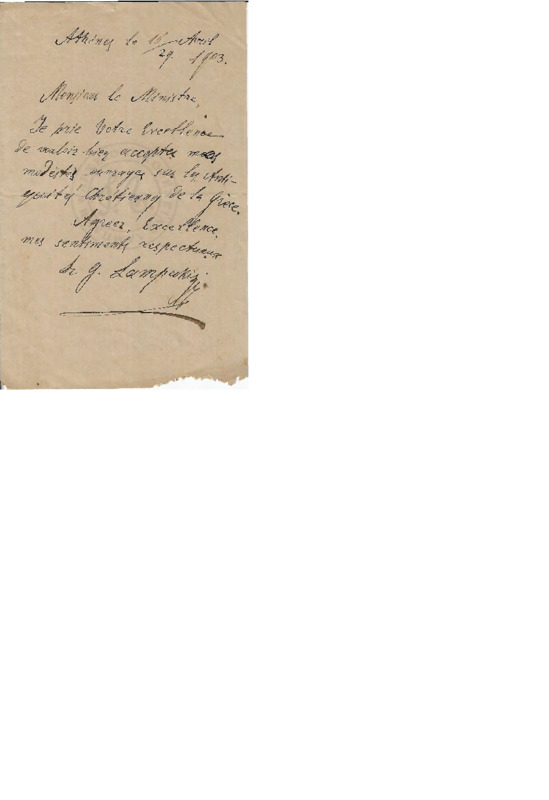 Athènes le 16/29 Avril
1903.
Monsieur le Ministre,
Je prie Votre Excellence
de vouloir bien accepter mes
modestes ouvrages sur les Anti-
quités Chrétiennes de la Grèce.
Agréez, Excellence,
mes sentiments respectueux
Dr. G. Lampakis